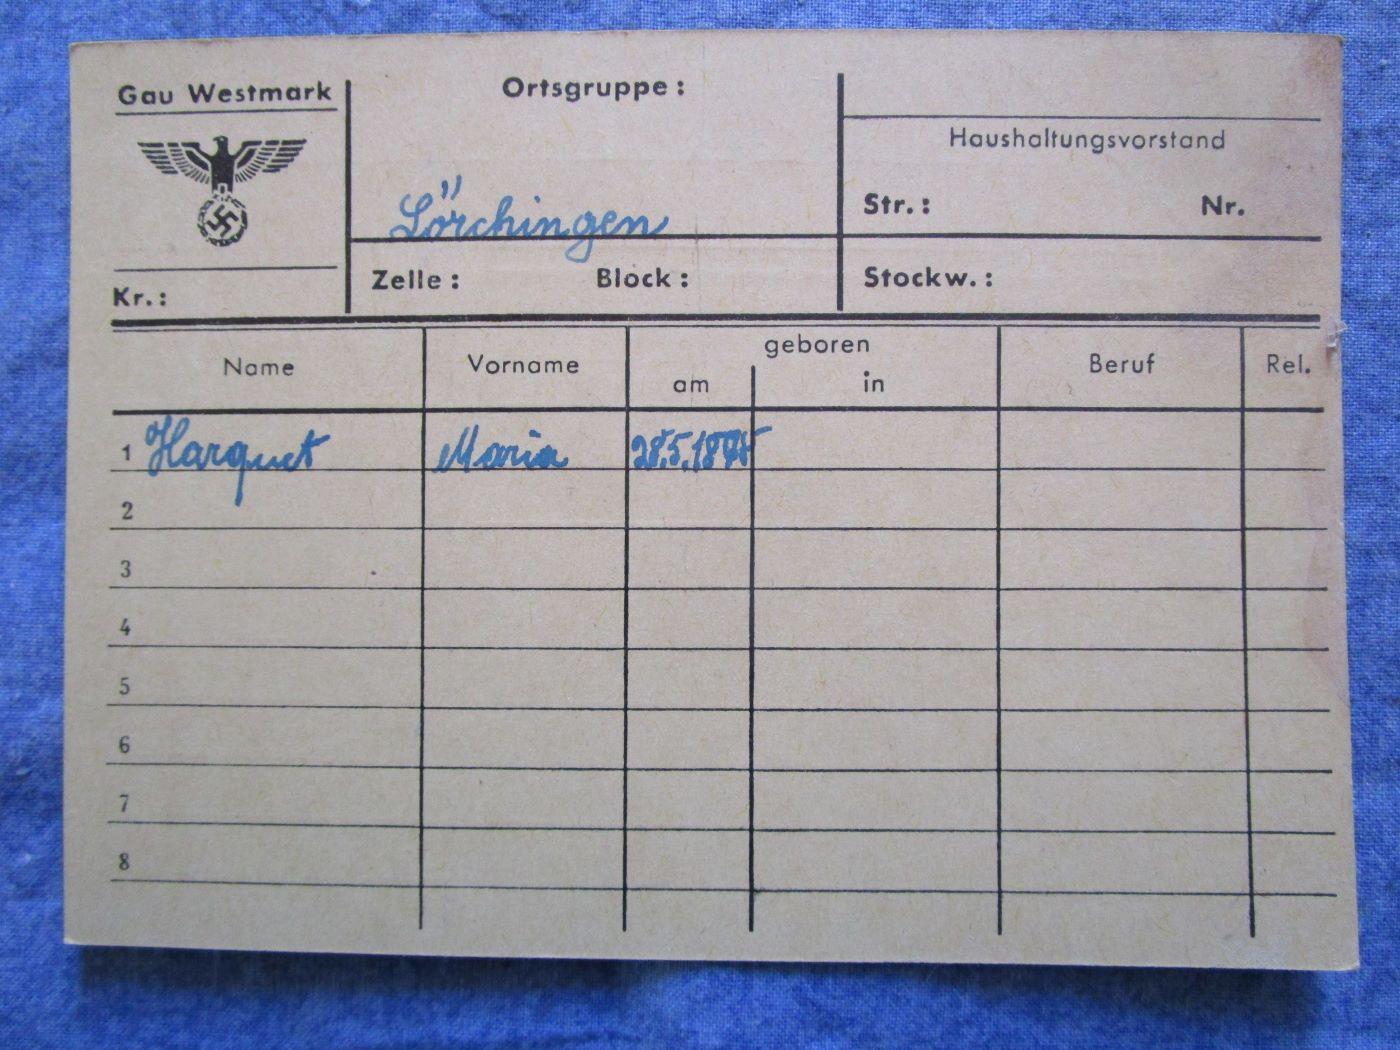 Gau Westmark
Ortsgruppe:
Lörchingen
Haushaltungsvorstand
Str.: Nr.
Kr.:
Zelle: Block:
Stockw.:
Name Vorname geboren am in Beruf Rel.
1 Harquet Maria
2
3
4
5
6
7
8